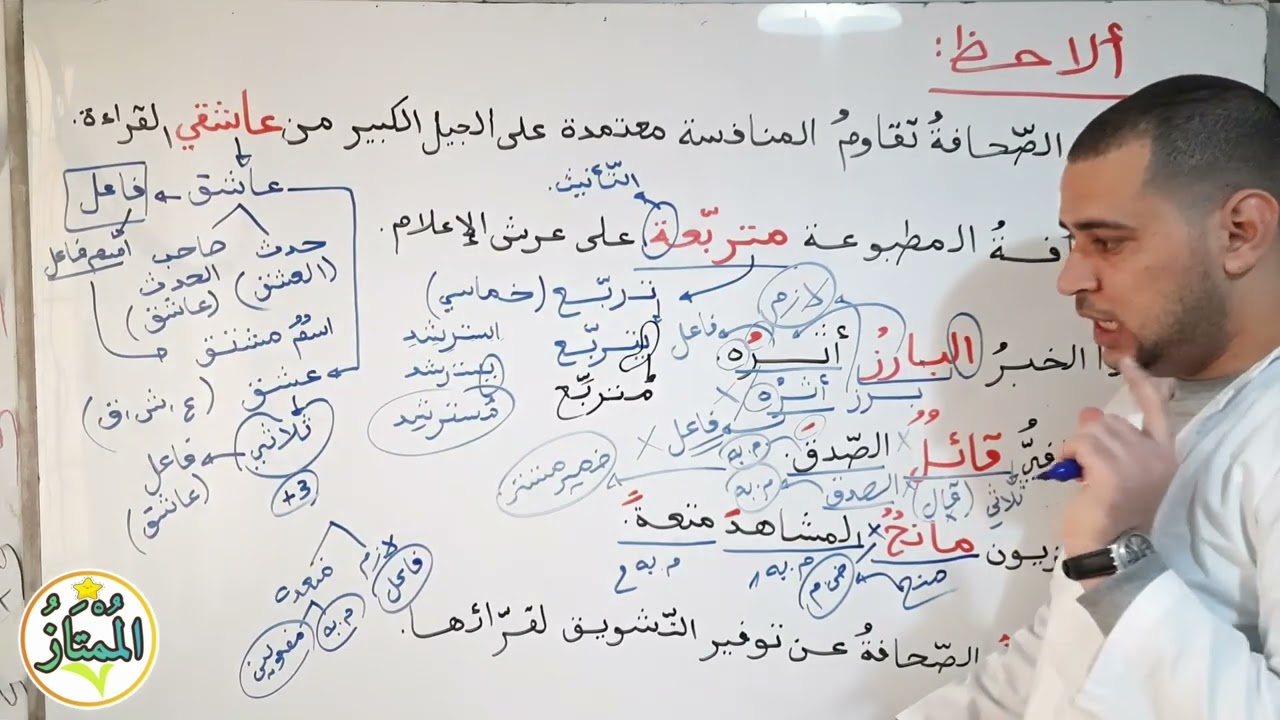 ألاحظ:
الصّحافةُ تقاومُ المنافسة معتمدة على الجيل الكبير من عاشقي القراءة.
التّأنيث.
عاشق
فاعل
فةُ المطبوعة متربّعة على عرش الإعلام.
حدث صاحب اسم فاعل
(العشق) الحدث
(عاشق)
تربّع (خماسي)
لازم
اسم مشتق
يتربّع
استرشد
الخبرُ البارزُ أثرُه
فاعل
يسترشد
مُتربّع
برز أثرُه
عشق (ع، ش، ق)
مُسترشد
ثلاثي
فاعل
(عاشق)
+3
قائلٌ الصّدقَ.
م. به
فاعل
ضمير مستتر
ثلاثي (قال) الصدق م. به
زيون مانحٌ المشاهدَ متعةً.
منح
ض م
م. به 1
م. به 2
لازم
متعد
فاعل
م. به
مفعولين
الصّحافةُ عن توفير التّشويق لقرّائها.
المُمْتَازُ